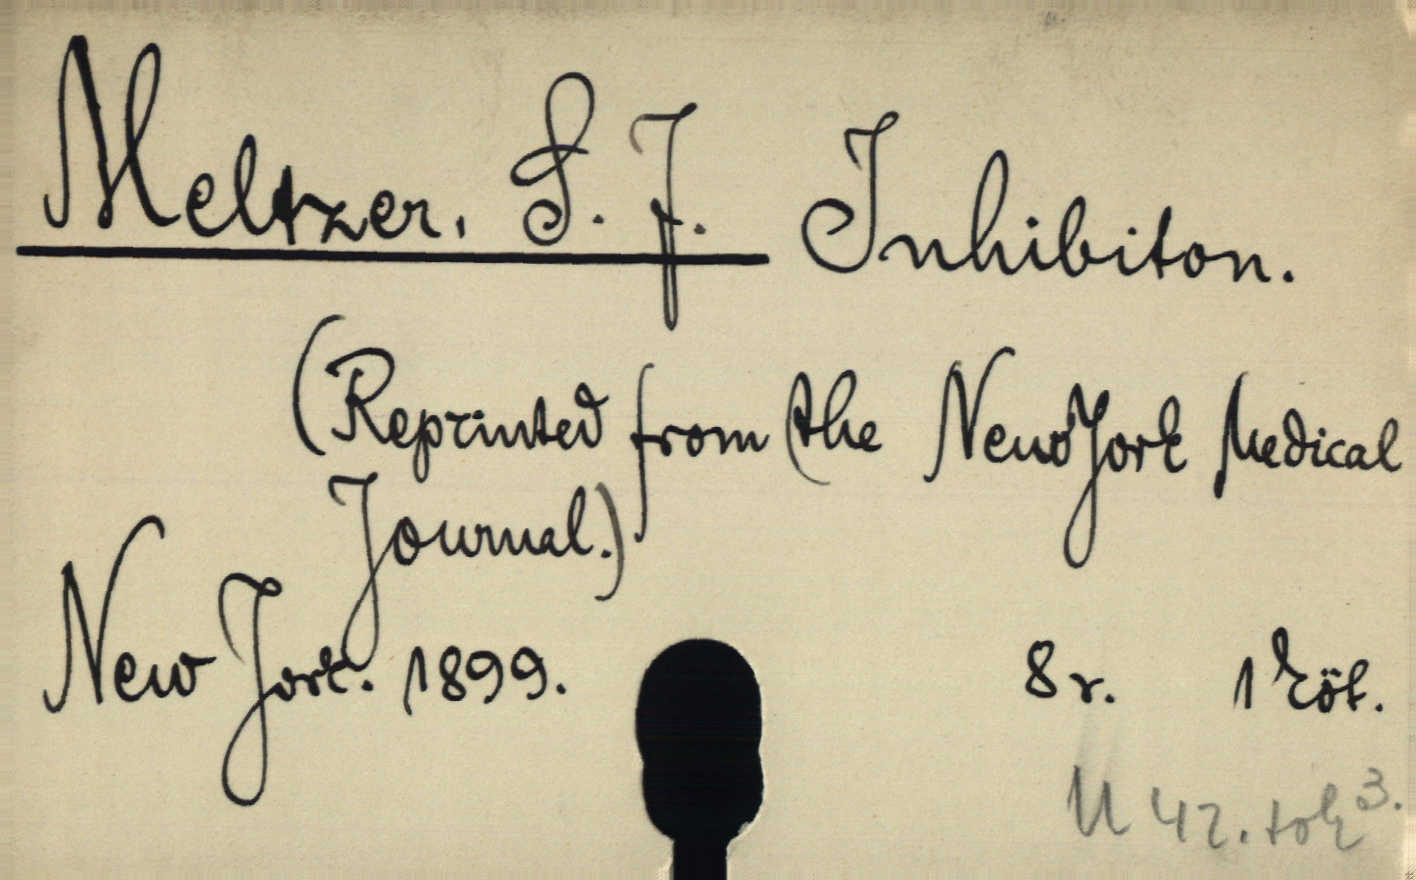 Meltzer, S. J. Inhibiton.
(Reprinted from the New York Medical
Journal.)
New York. 1899. 8 r. 1 köt.
U 42.